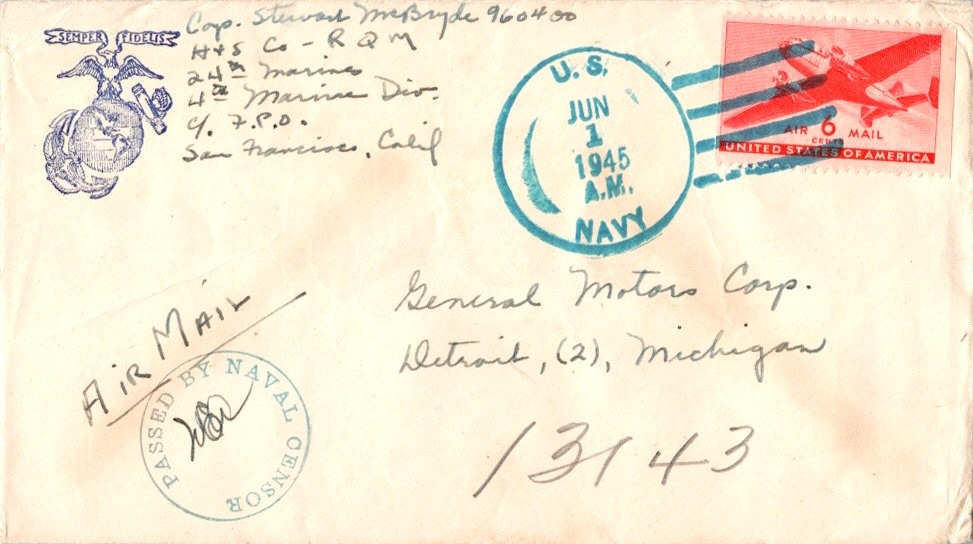 SEMPER FIDELIS
Corp. Stewart McBryde 960400
H+S Co - R Q M
24th Marines
4th Marine Div.
c/o F.P.O.
San Francisco, Calif
U.S.
JUN
1
1945
A.M.
NAVY
AIR 6 MAIL
CENTS
UNITED STATES OF AMERICA
General Motors Corp.
Detroit, (2), Michigan
AIR MAIL
PASSED BY NAVAL CENSOR
13143